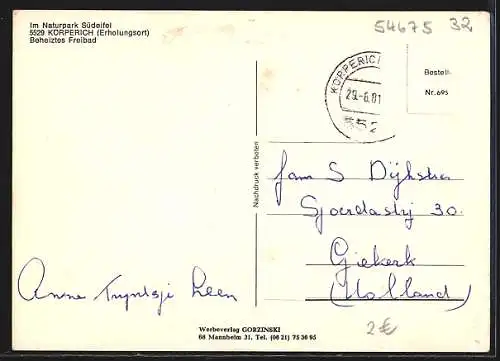 Im Naturpark Südeifel
5529 KÖRPERICH (Erholungsort)
Beheiztes Freibad
54675 32
KÖRPERICH
29.-6.81
552
Bestell
Nr. 695
Nachdruck verboten
fam S Dijkstra
30.
Giekerk
(Holland)
Anne Tryntsje Leen
Werbeverlag GORZINSKI
68 Mannheim 31, Tel. (06 21) 75 36 95
2€